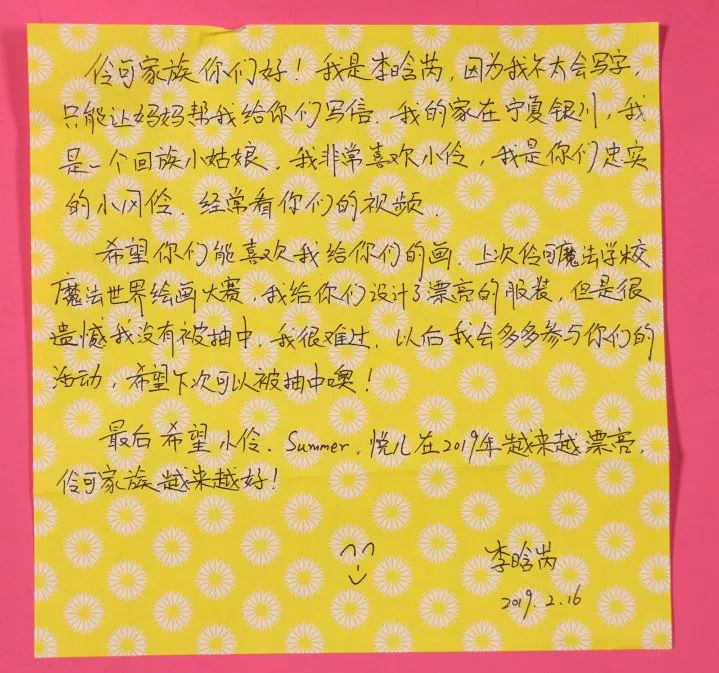 伶可家族你们好！我是李晗芮，因为我不太会写字，
只能让妈妈帮我给你们写信。我的家在宁夏银川，我
是一个回族小姑娘。我非常喜欢小伶，我是你们忠实
的小冈伶．经常看你们的视频．
希望你们能喜欢我给你们的画．上次伶可魔法学校
魔法世界绘画大赛，我给你们设计了漂亮的服装，但是很
遗憾我没有被抽中．我很难过．以后我会多多参与你们的
活动，希望下次可以被抽中噢！
最后希望小伶、Summer、悦儿在2019年越来越漂亮，
伶可家族越来越好！
李晗芮
2019.2.16